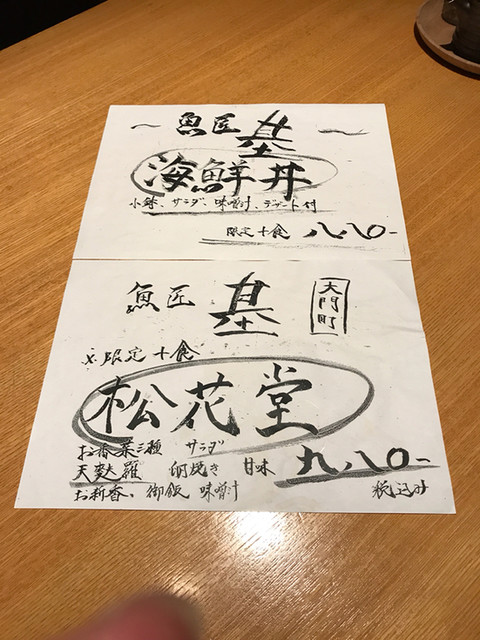 〜 魚匠 基 〜
海鮮丼
小鉢、サラダ、味噌汁、デザート付
限定十食 八八〇-
魚匠 基 大門町
※限定十食
松花堂
お番菜三種 サラダ
天麩羅 卵焼き 甘味 九八〇-
お新香、御飯 味噌汁 税込み